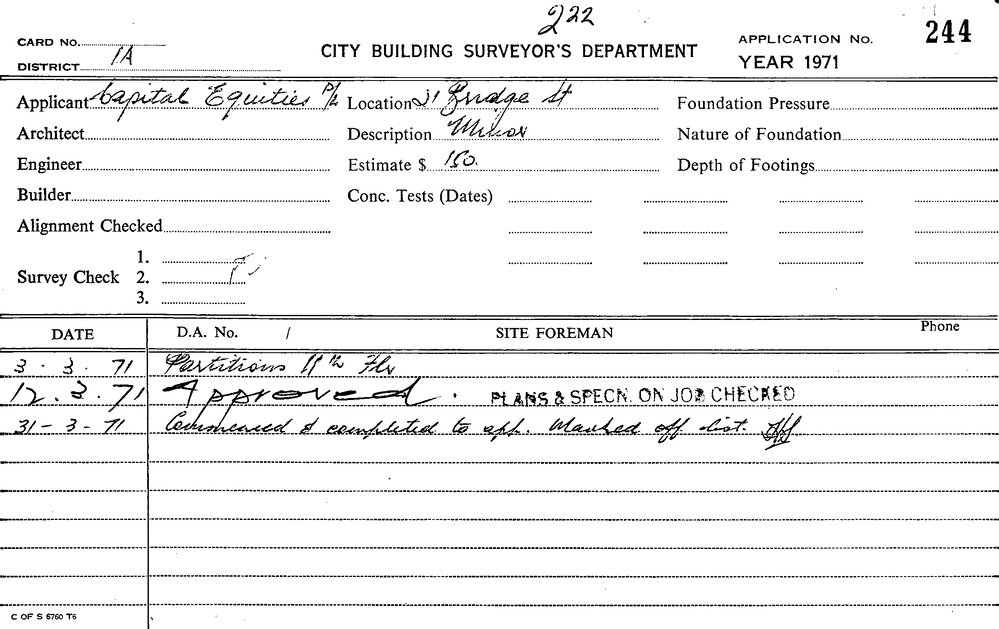 222
244
CARD No.
CITY BUILDING SURVEYOR'S DEPARTMENT
APPLICATION No.
DISTRICT 1A
YEAR 1971
Applicant Capital Equities P/L Location 21 Bridge St Foundation Pressure
Architect Description Minor Nature of Foundation
Engineer Estimate $ 150. Depth of Footings
Builder Conc. Tests (Dates)
Alignment Checked
1.
Survey Check 2.
3.
DATE D.A. No. / SITE FOREMAN Phone
3. 3. 71 Partitions 11th Flr
12. 3. 71 Approved. PLANS & SPECN. ON JOB CHECKED
31-3-71 Commenced & completed to app. Marked off dist.
C OF S 6760 T6